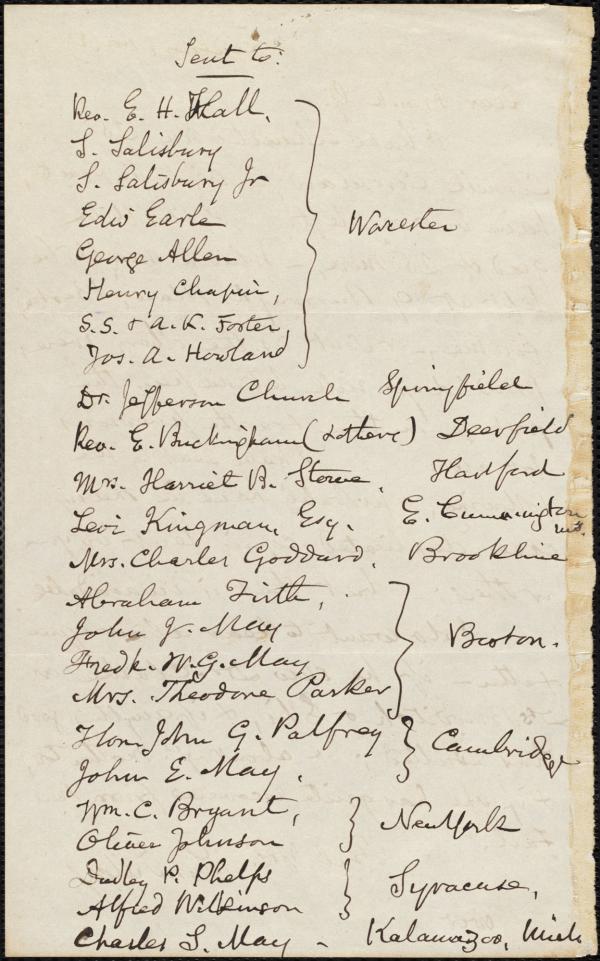 Sent to:
Rev. E. H. Hall,
S. Salisbury
S. Salisbury Jr
Edw Earle
George Allen
Worcester
Henry Chapin,
S. S. & A. K. Foster,
Jos. A. Howland
Dr. Jefferson Church Springfield
Rev. E. Buckingham (& others) Deerfield
Mrs. Harriet B. Stowe, Hartford
Levi Kingman, Esq. E. Cummington Ms.
Mrs. Charles Goddard, Brookline
Abraham Firth,
John J. May
Fredk. W. G. May
Mrs. Theodore Parker
Boston.
Hon. John G. Palfrey
John E. May.
Cambridge
Wm. C. Bryant,
Oliver Johnson
New York
Dudley P. Phelps
Alfred Wilkinson
Syracuse,
Charles S. May - Kalamazoo, Mich